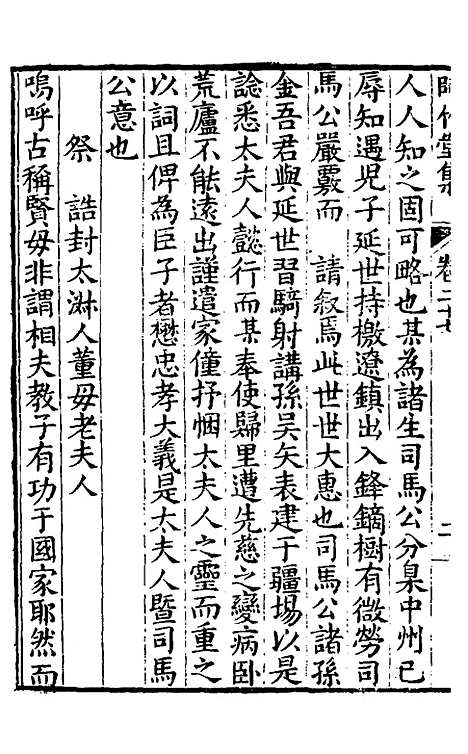 竹堂集 卷二十七 二
人人知之固可略也某為諸生司馬公分臬中州已
辱知遇児子延世持檄遼鎮出入鋒鏑樹有微勞司
馬公嚴覈而 請叙焉此世世大惠也司馬公諸孫
金吾君與延世習騎射講孫吴矢表建于疆場以是
諗悉太夫人懿行而某奉使歸里遭先慈之變病卧
荒廬不能遠出謹遣家僮抒悃太夫人之靈而重之
以詞且俾為臣子者懋忠孝大義是太夫人暨司馬
公意也
祭 誥封太淋人董毋老夫人
嗚呼古稱賢毋非謂相夫教子有功于國家耶然而